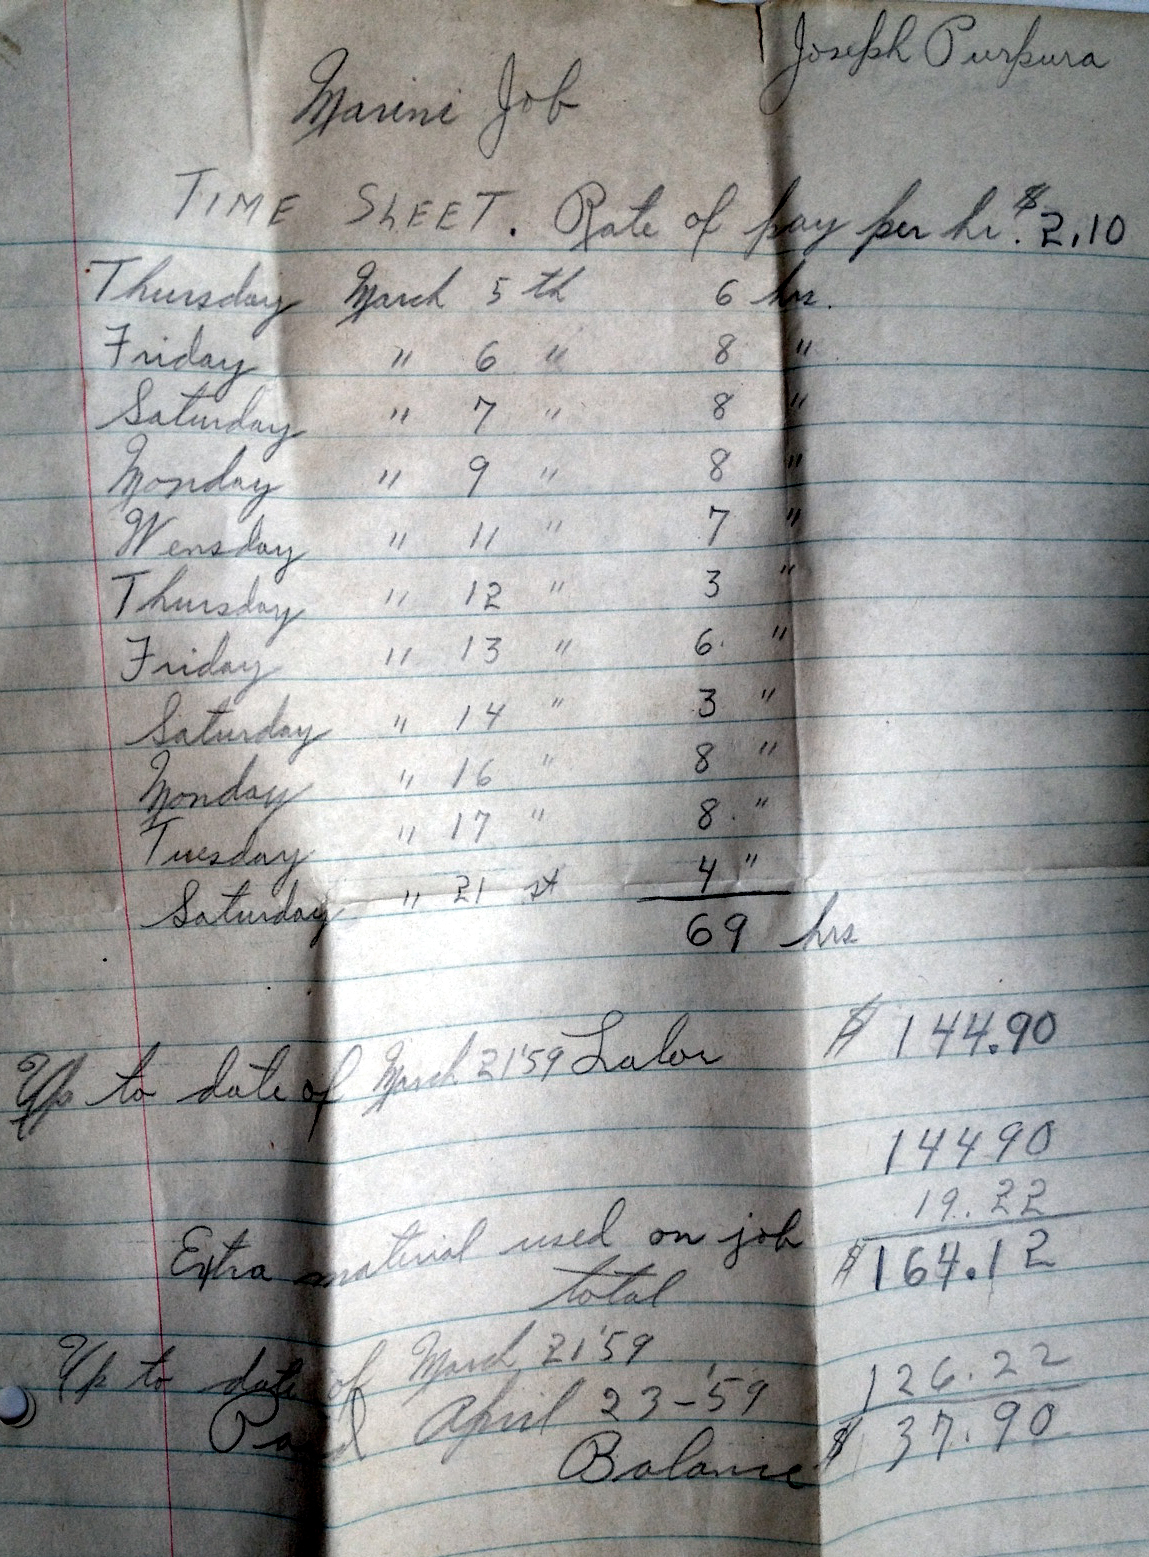 Joseph Purpura
Marini Job
TIME SHEET. Rate of pay per hr. $2.10
Thursday March 5 th 6 hrs.
Friday " 6 " 8 "
Saturday " 7 " 8 "
Monday " 9 " 8 "
Wensday " 11 " 7 "
Thursday " 12 " 3 "
Friday " 13 " 6. "
Saturday " 14 " 3 "
Monday " 16 " 8 "
Tuesday " 17 " 8. "
Saturday " 21 st 4 "
69 hrs
Up to date of March 21'59 Labor $ 144.90
14490
19.22
Extra material used on job $164.12
total
Up to date of March 21'59
126.22
Paid April 23-'59
Balance $ 37.90